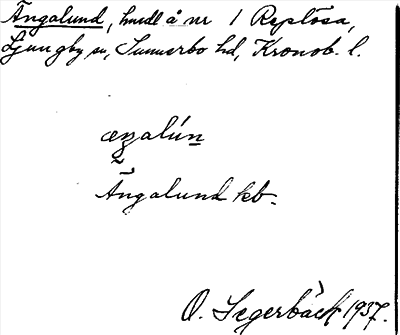 Ängalund, hmdl å nr 1 Replösa,
Ljungby sn, Sunnerbo hd, Kronob. l.
æŋalún
~
Ängalund kb.
O. Segerbäck 1937.